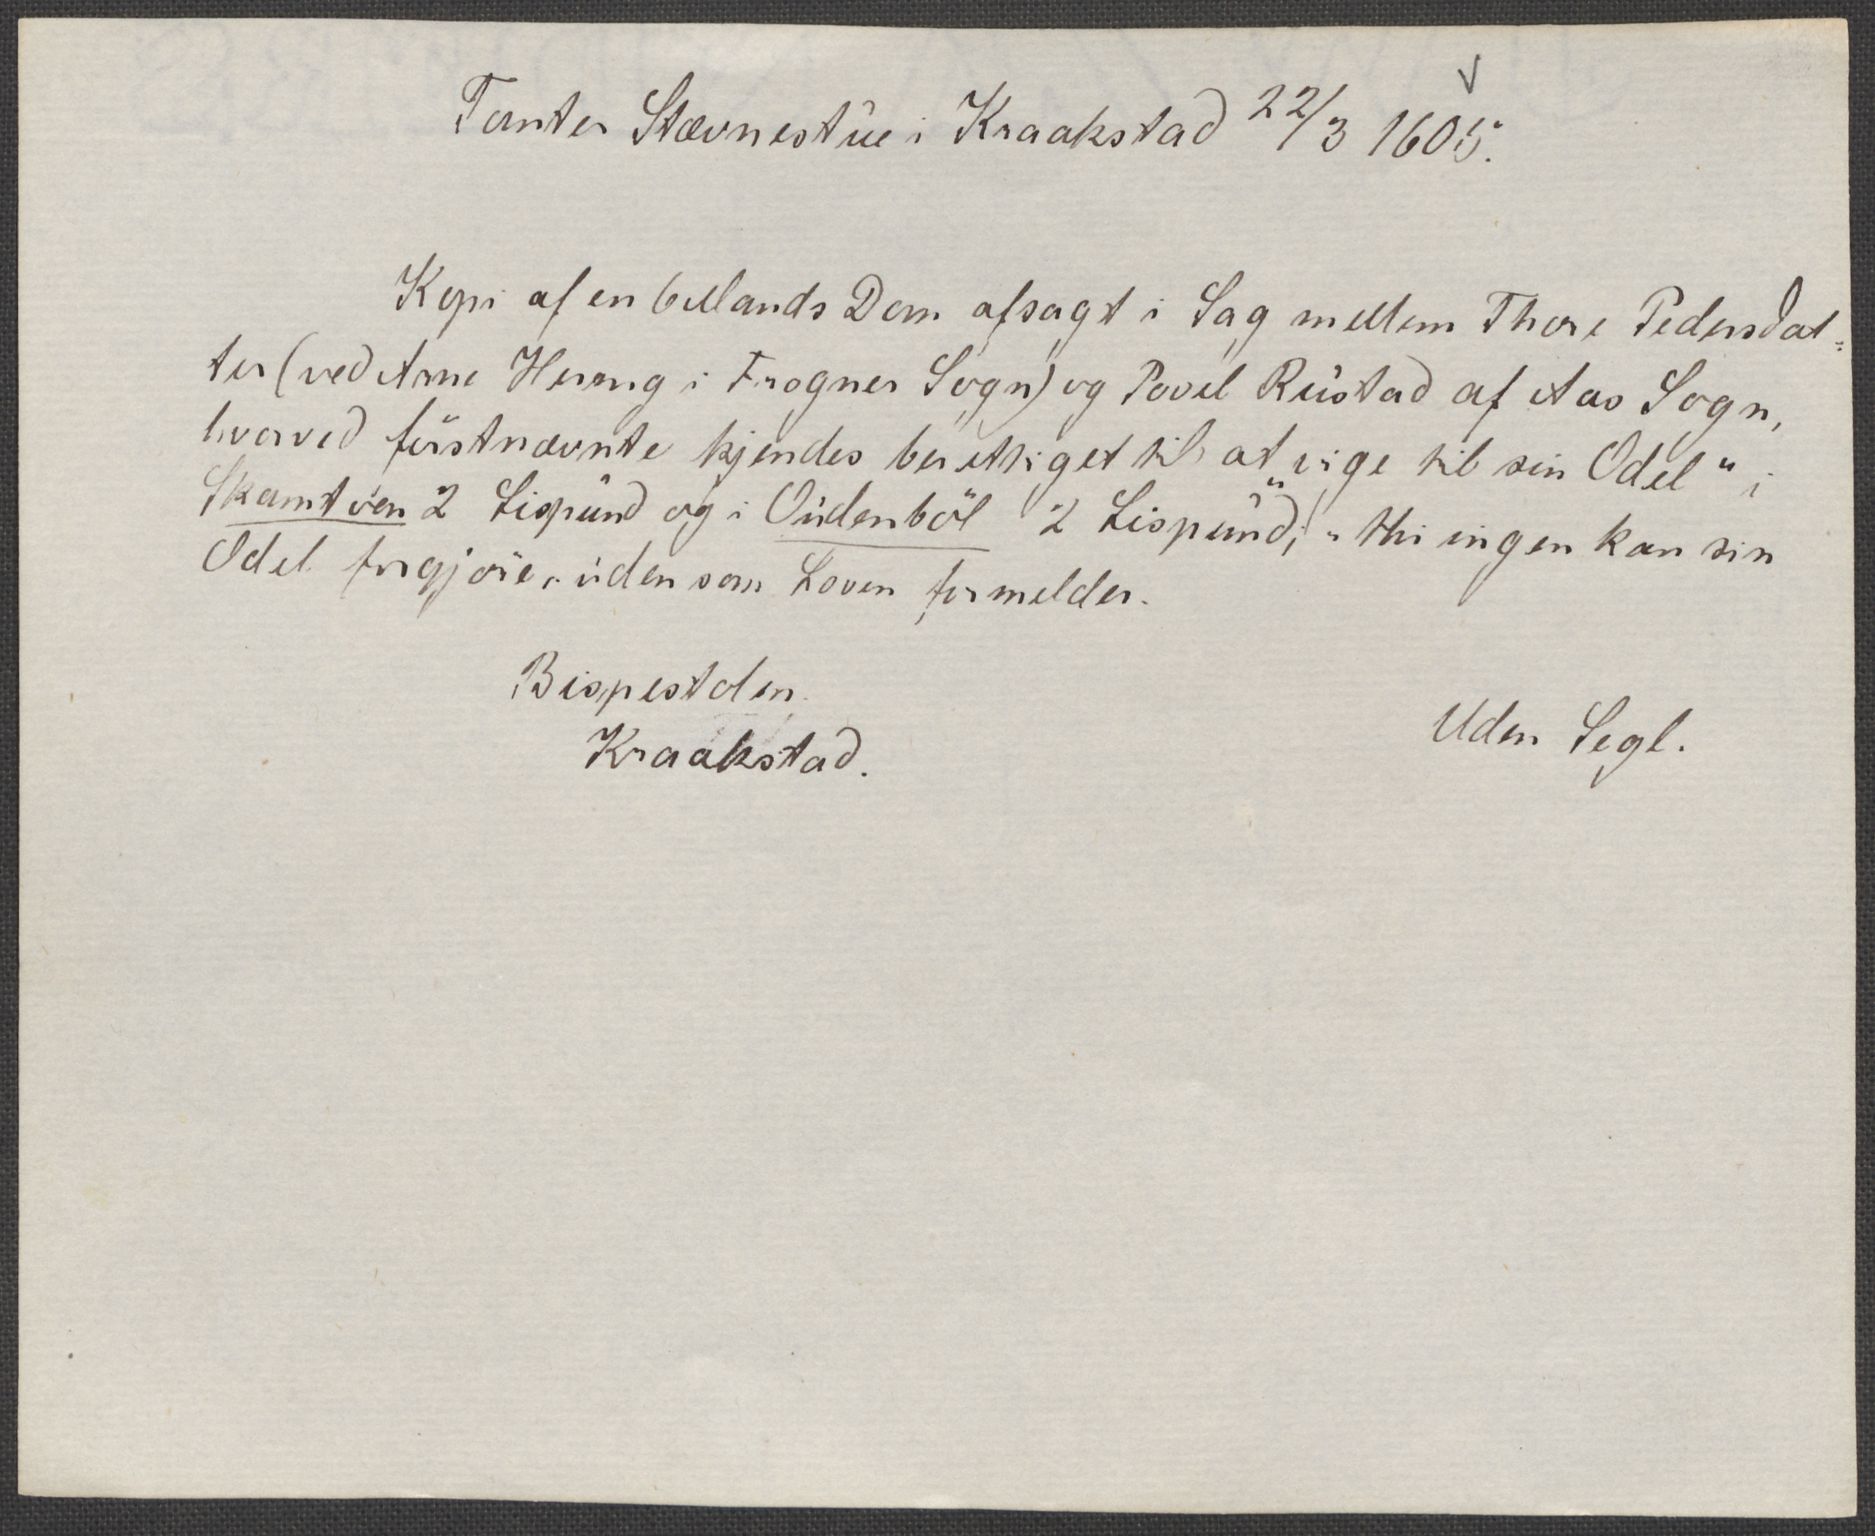 Tomter Stævnestüe i Kraakstad 22/3 1605.
Kopi af en 6 Mands Dom afsagt i Sag mellem Thore Pedersdat=
ter (ved Arne Herrng i Frogner Sogn) og Povel Rüstad af Aas Sogn,
hvorved förstnævnte kjendes berettiget til at "vige til sin Odel" i
Skamtven 2 Lispünd og i Oüdenböl 2 Lispünd, "thi ingen kan sin
Odel forgjöre, üden som Loven formelder.
Bispestolen.
Kraakstad.
Uden Segl.